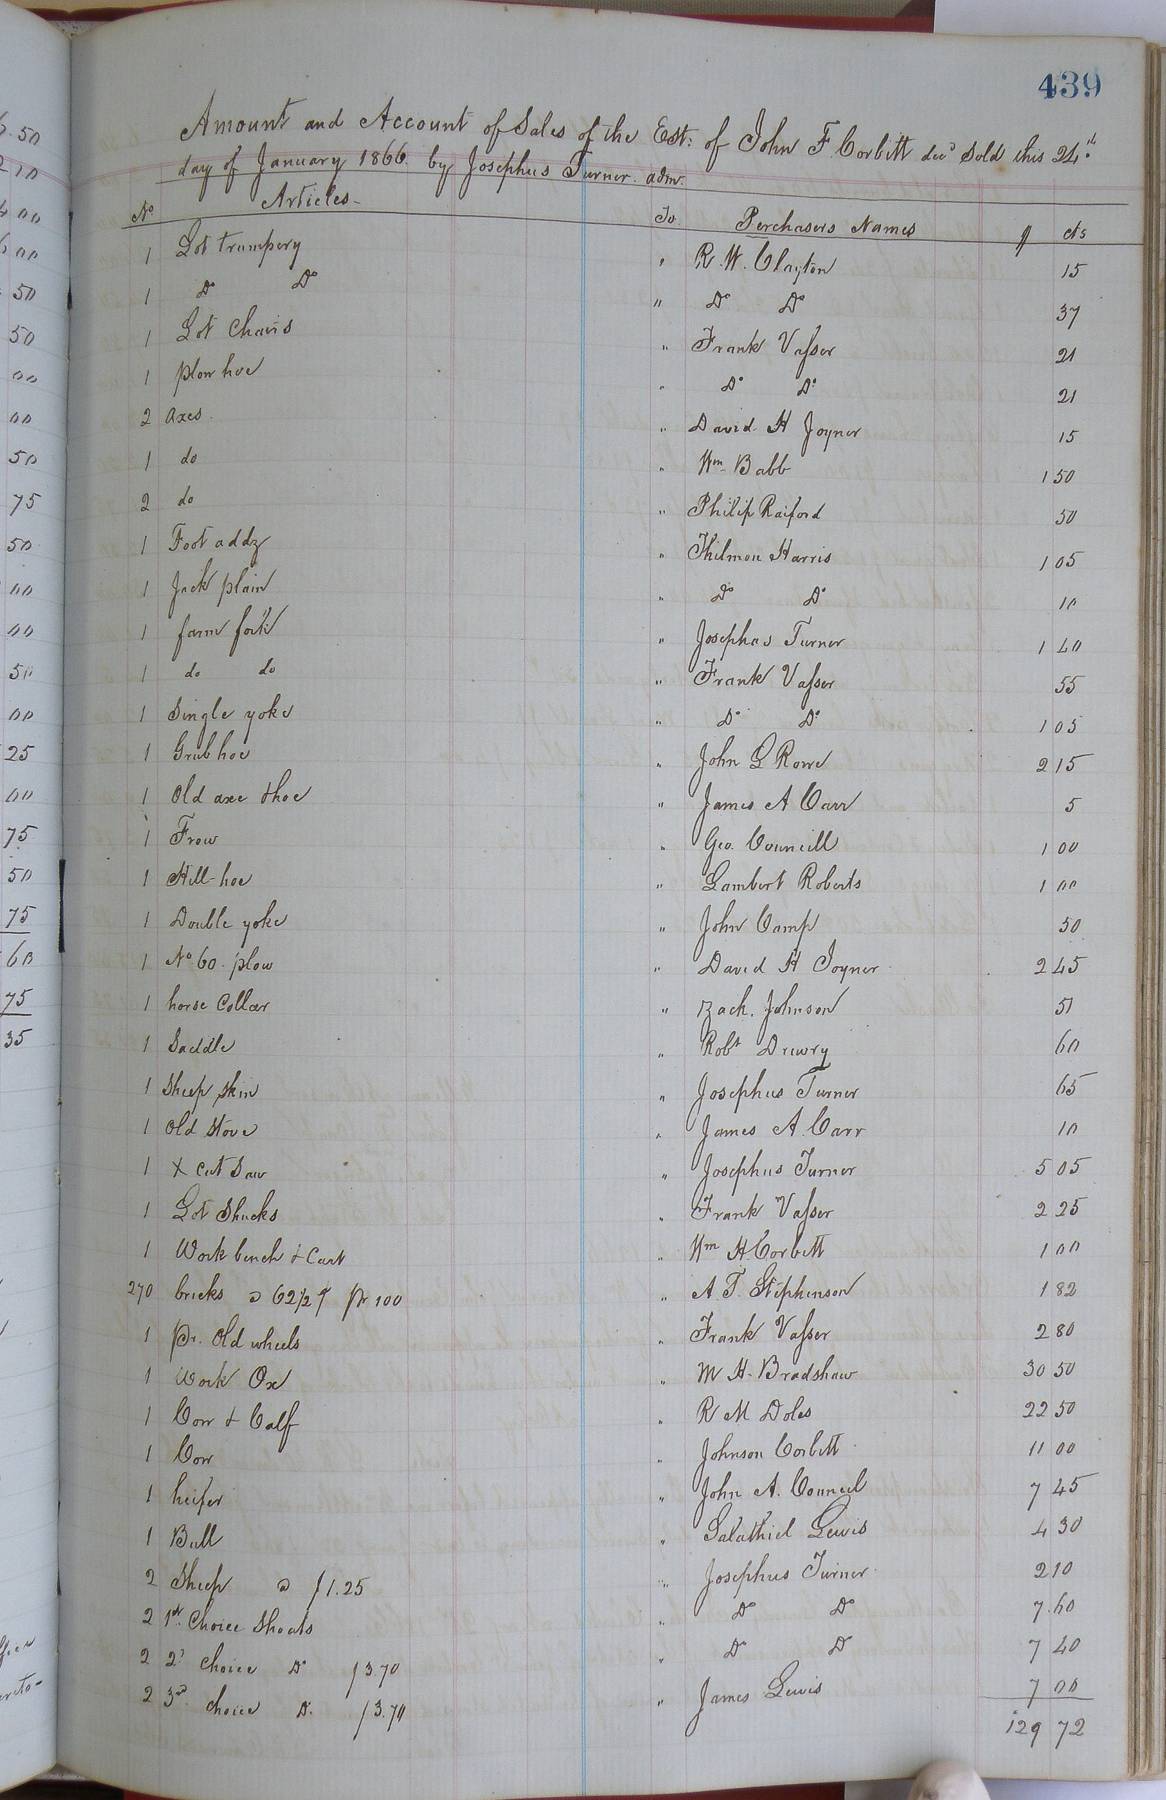 439
Amount and Account of Sales of the Est: of John F. Corbitt decd Sold this 24th
day of January 1866. by Josephus Turner. admr.
No Articles- To. Perchasers Names $ cts
1 Lot trumpery " R. W. Clayton 15
1 Do Do " Do Do 37
1 Lot Chairs " Frank Vasser 21
1 plow hoe " Do Do 21
2 axes " David H Joyner 15
1 do " Wm Babb 1 50
2 do " Philip Raiford 50
1 Foot addz " Thilmon Harris 1 05
1 Jack plain " Do Do 10
1 farm fork " Josephus Turner 1 40
1 do do " Frank Vasser 55
1 Single yoke " Do Do 1 05
1 Grub hoe " John G Rowe 2 15
1 Old axe & hoe " James A Carr 5
1 Frow " Geo. Councill 1 00
1 Hill-hoe " Lambert Roberts 1 00
1 Double yoke " John Camp 50
1 No 60. plow " David H Joyner 2 45
1 horse Collar " Zach. Johnson 51
1 Saddle " Robt Drewry 60
1 Sheep skin " Josephus Turner 65
1 Old Stove " James A. Carr 10
1 X cut Saw " Josephus Turner 5 05
1 Lot Shucks " Frank Vasser 2 25
1 Work bench & Cart " Wm H. Corbett 1 00
270 bricks @ 62 1/2 ¢ pr 100 " A. T. Stephenson 1 82
1 pr. Old wheels " Frank Vasser 2 80
1 Work Ox " M H. Bradshaw 30 50
1 Cow & Calf " R M Doles 22 50
1 Cow " Johnson Corbett 11 00
1 heifer " John A. Council 7 45
1 Bull " Salathiel Lewis 4 30
2 Sheep @ $1.25 " Josephus Turner 2 10
2 1st Choice Shoats " Do Do 7.60
2 2d choice Do $3.70 " Do Do 7 40
2 3rd choice Do. $3.70 " James Lewis 7 00
129 72